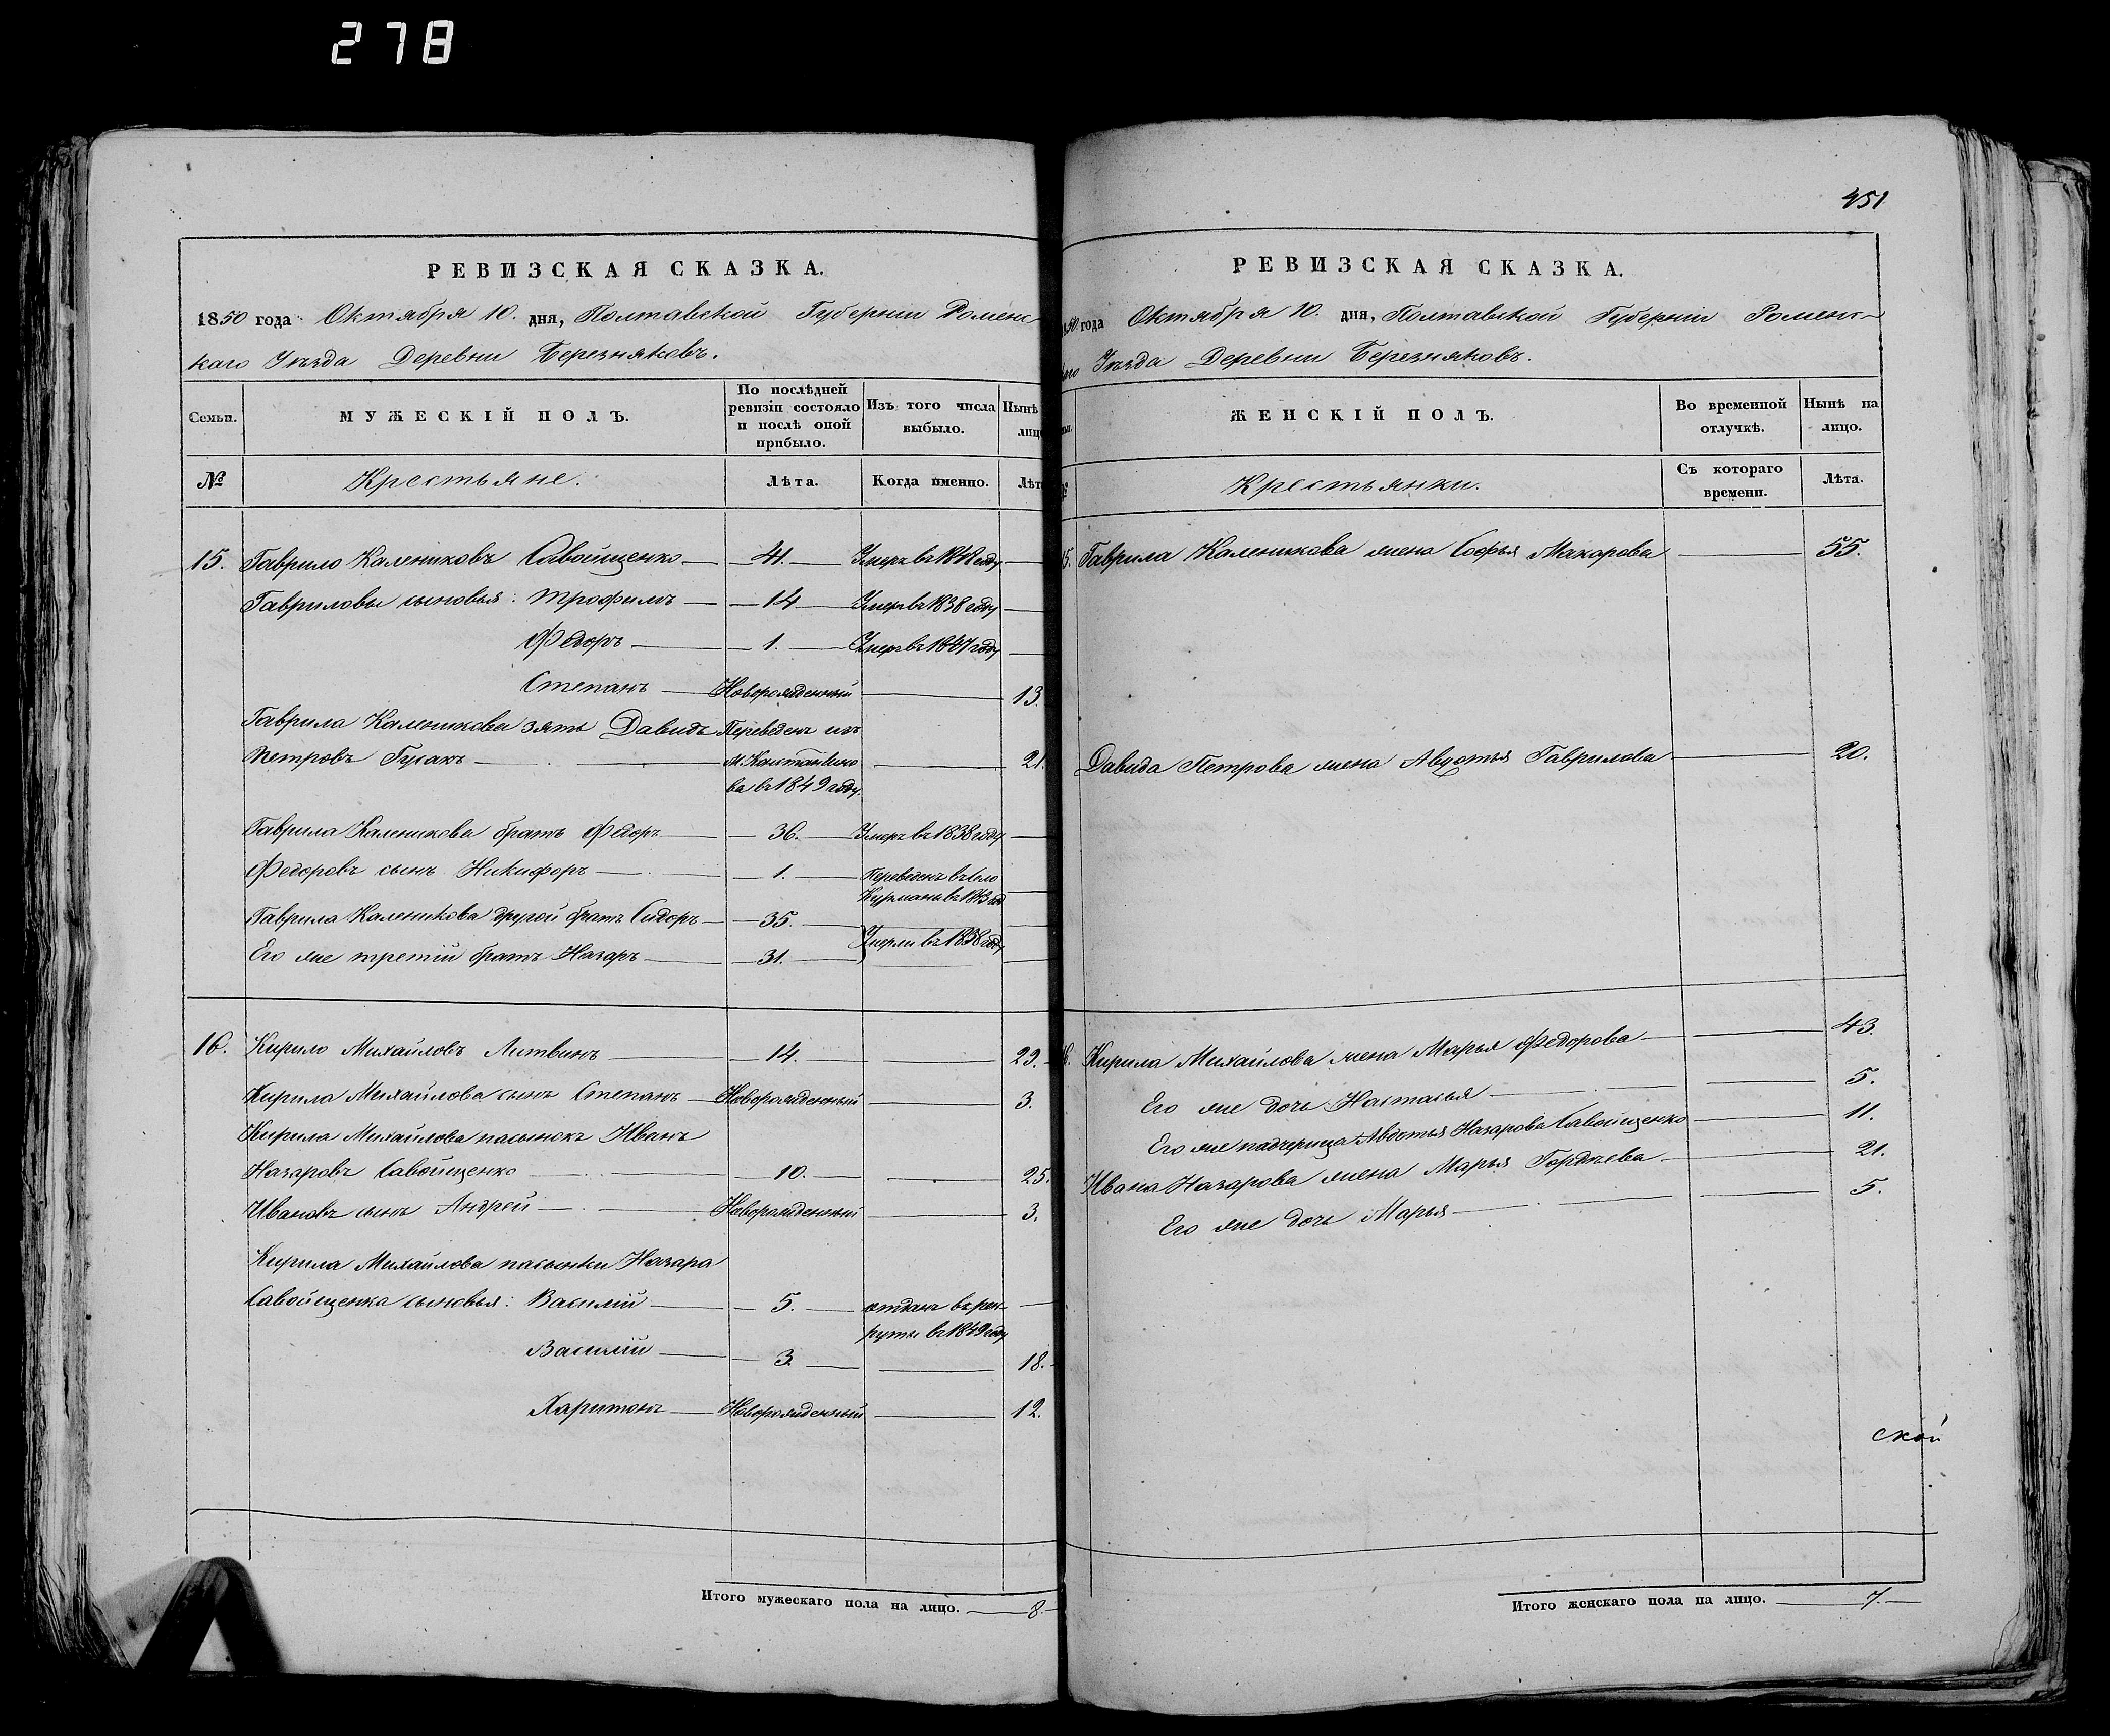 278
РЕВИЗСКАЯ СКАЗКА.
1850 года Октября 10. дня, Полтавской Губернiи Роменс-
каго Уѣзда Деревни Березняковъ.
Семьи.
МУЖЕСКIЙ ПОЛЪ.
По послѣдней ревизiи состояло и послѣ оной прибыло.
Изъ того числа выбыло.
Нынѣ
лицо
№
Крестьяне.
Лѣта.
Когда именно.
Лѣт
15. Гаврило Калениковъ Савойщенко — 41. — Умеръ въ 1848 году —
Гавриловы сыновья: Трофимъ — 14 — Умеръ въ 1838 году —
Федоръ — 1. — Умеръ въ 1847 году —
Степанъ — Новорожденный — 13.
Гаврила Каленикова зять Давидъ Переведенъ изъ
Петровъ Гусакъ — м. Константино — 21.
ва въ 1849 году.
Гаврила Каленикова братъ Федоръ — 36. — Умеръ въ 1838 году —
Федоровъ сынъ Никифоръ — 1. — Переведенъ въ село
Курмань въ 1843 год
Гаврила Каленикова другой братъ Сидоръ — 35. —
Умерли въ 1838 году
Его же третiй братъ Назаръ — 31. —
16. Кирило Михайловъ Литвинъ — 14. — 29.
Кирила Михайлова сынъ Степанъ — Новорожденный — 3.
Кирила Михайлова пасынокъ Иванъ
Назаровъ Савойщенко — 10. — 25.
Ивановъ сынъ Андрей — Новорожденный — 3.
Кирила Михайлова пасынки Назара
Савойщенка сыновья: Василiй — 5. — отданъ въ рек-
руты въ 1849 году
Василiй — 3. — 18.
Харитонъ — Новорожденный — 12.
Итого мужескаго пола на лицо. — 8. —
451
РЕВИЗСКАЯ СКАЗКА.
года Октября 10. дня, Полтавской Губернiи Роменс-
каго Уѣзда Деревни Березняковъ.
ЖЕНСКIЙ ПОЛЪ.
Во временной отлучкѣ.
Нынѣ на лицо.
Крестьянки.
Съ котораго времени.
Лѣта.
15. Гаврила Каленикова жена Софья Макарова — 55.
Давида Петрова жена Авдотья Гаврилова — 20.
16. Кирила Михайлова жена Марья Федорова — 43.
Его же дочь Настасья — 5.
Его же падчерица Авдотья Назарова Савойщенко — 11.
Ивана Назарова жена Марья Гордѣева — 21.
Его же дочь Марья — 5.
ской
Итого женскаго пола на лицо. — 7. —